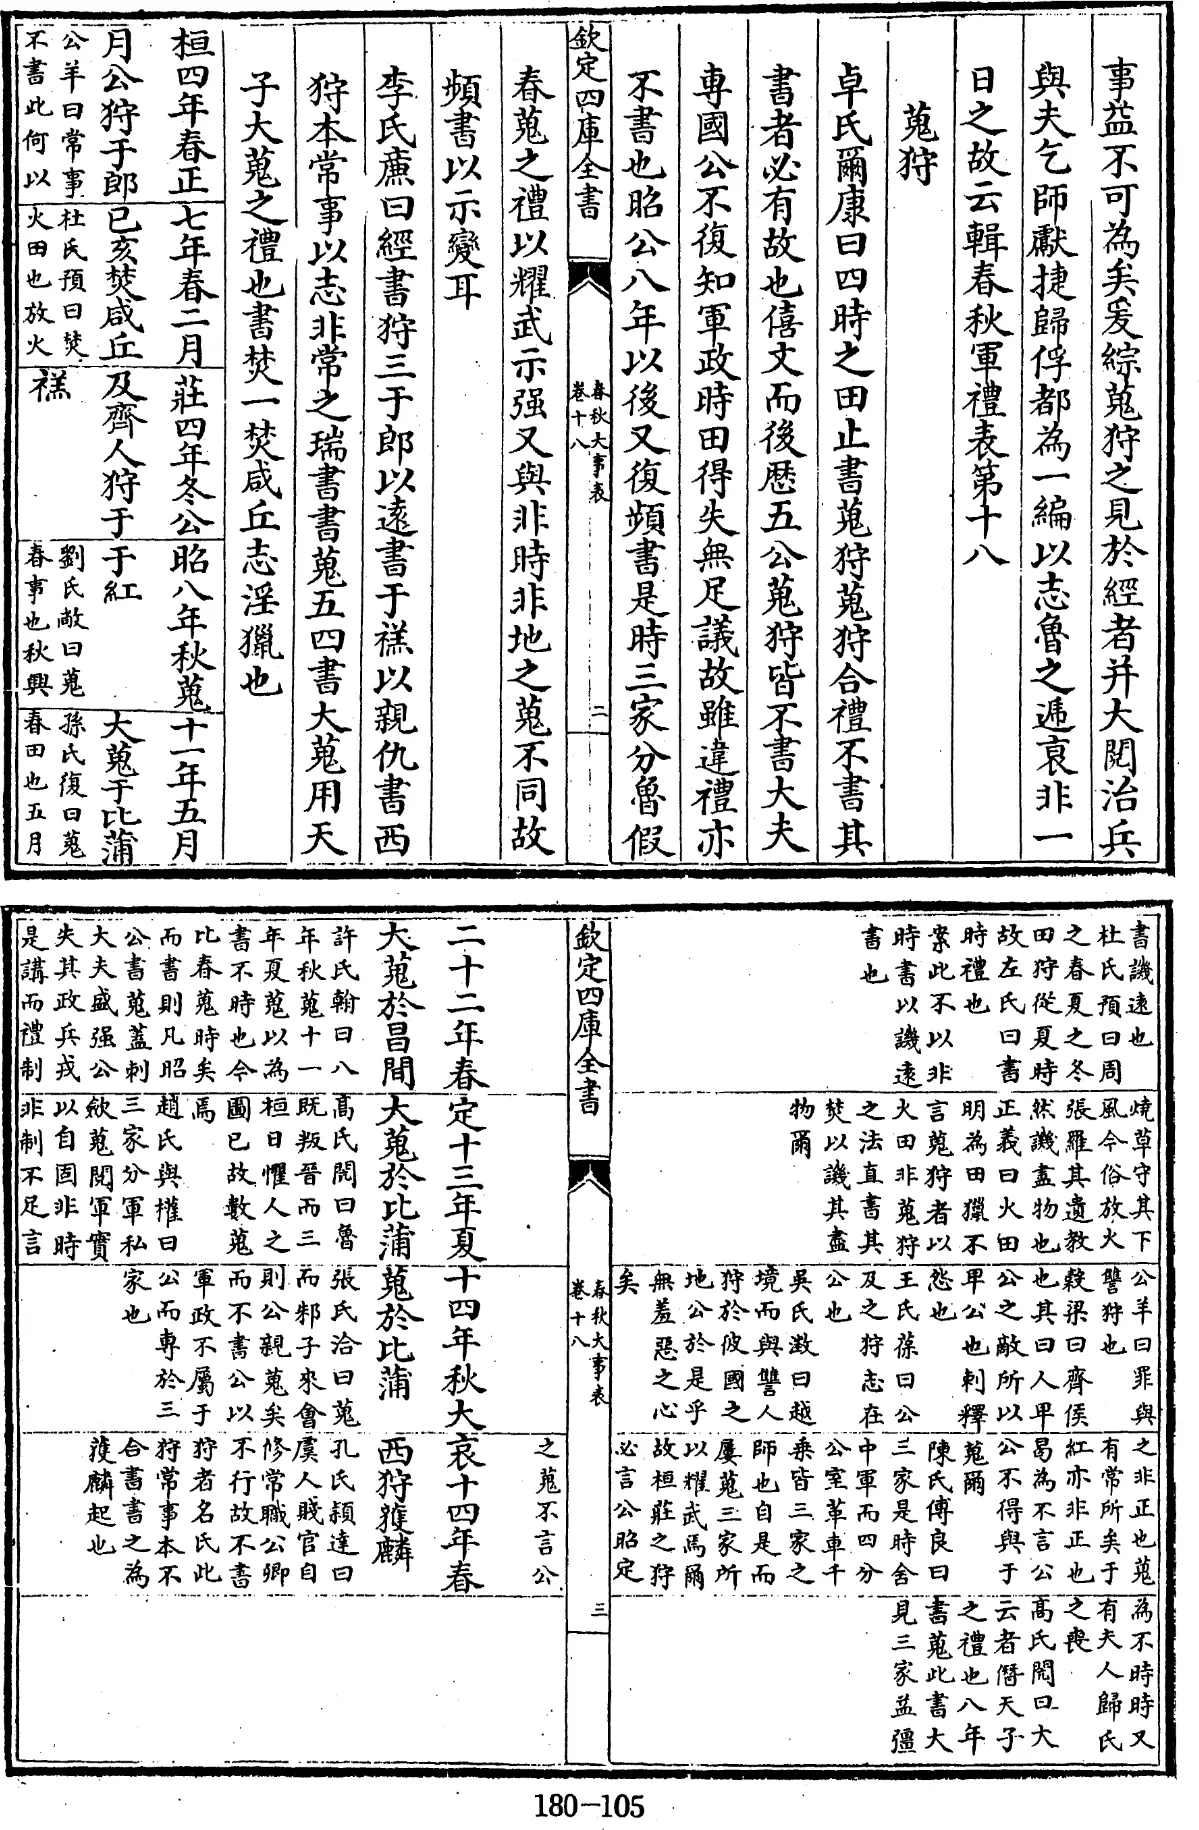 事益不可為矣爰綜蒐狩之見於經者并大閱治兵
與夫乞師獻捷歸俘都為一編以志魯之遞衰非一
日之故云輯春秋軍禮表第十八
蒐狩
卓氏爾康曰四時之田止書蒐狩蒐狩合禮不書其
書者必有故也僖文而後歴五公蒐狩皆不書大夫
專國公不復知軍政時田得失無足議故雖違禮亦
不書也昭公八年以後又復頻書是時三家分魯假
欽定四庫全書
春秋大事表
卷十八
二
春蒐之禮以耀武示强又與非時非地之蒐不同故
頻書以示變耳
李氏廉曰經書狩三于郎以遠書于禚以親仇書西
狩本常事以志非常之瑞書書蒐五四書大蒐用天
子大蒐之禮也書焚一焚咸丘志淫獵也
桓四年春正
月公狩于郎
公羊曰常事
不書此何以
七年春二月
已亥焚咸丘
杜氏預曰焚
火田也放火
莊四年冬公
及齊人狩于
禚
昭八年秋蒐
于紅
劉氏敞曰蒐
春事也秋興
十一年五月
大蒐于比蒲
孫氏復曰蒐
春田也五月
書譏逺也
杜氏預曰周
之春夏之冬
田狩從夏時
故左氏曰書
時禮也
案此不以非
時書以譏逺
書也
燒草守其下
風今俗放火
張羅其遺教
然譏盡物也
正義曰火田
明為田獵不
言蒐狩者以
火田非蒐狩
之法直書其
焚以譏其盡
物爾
公羊曰罪與
讐狩也
穀梁曰齊侯
也其曰人卑
公之敵所以
卑公也刺釋
怨也
王氏葆曰公
及之狩志在
公也
吳氏澂曰越
境而與讐人
狩於彼國之
地公於是乎
無羞惡之心
矣
之非正也蒐
有常所矣于
紅亦非正也
曷為不言公
公不得與于
蒐爾
陳氏傅良曰
三家是時舍
中軍而四分
公室革車千
乘皆三家之
師也自是而
屢蒐三家所
以耀武焉爾
故桓莊之狩
必言公昭定
之蒐不言公
為不時時又
有夫人歸氏
之喪
髙氏閌曰大
云者僭天子
之禮也八年
書蒐此書大
見三家益彊
欽定四庫全書
春秋大事表
卷十八
三
二十二年春
大蒐於昌間
許氏翰曰八
年秋蒐十一
年夏蒐以為
書不時也今
比春蒐時矣
而書則凡昭
公書蒐蓋刺
大夫盛强公
失其政兵戎
是講而禮制
定十三年夏
大蒐於比蒲
髙氏閌曰魯
既叛晉而三
桓日懼人之
圖已故數蒐
焉
趙氏與權曰
三家分軍私
斂蒐閱軍實
以自固非時
非制不足言
十四年秋大
蒐於比蒲
張氏洽曰蒐
而邾子來會
則公親蒐矣
而不書公以
軍政不屬于
公而專於三
家也
哀十四年春
西狩獲麟
孔氏頴達曰
虞人賤官自
修常職公卿
不行故不書
狩者名氏此
狩常事本不
合書書之為
獲麟起也
180-105